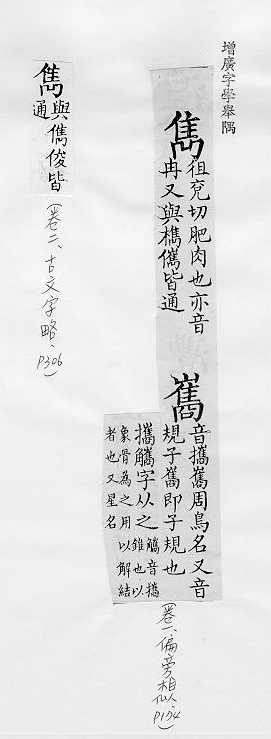 增廣字學舉隅
雋
徂兗切肥肉也亦音
冉又與檇儶皆通
巂
音攜巂周鳥名又音
規子巂即子規也
攜觿字从之
觿音攜
錐也以
象骨為之用以解結
者也又星名
(卷一、偏旁相似 P154)
雋
與儁俊皆
通
(卷二、古文字略、P306)